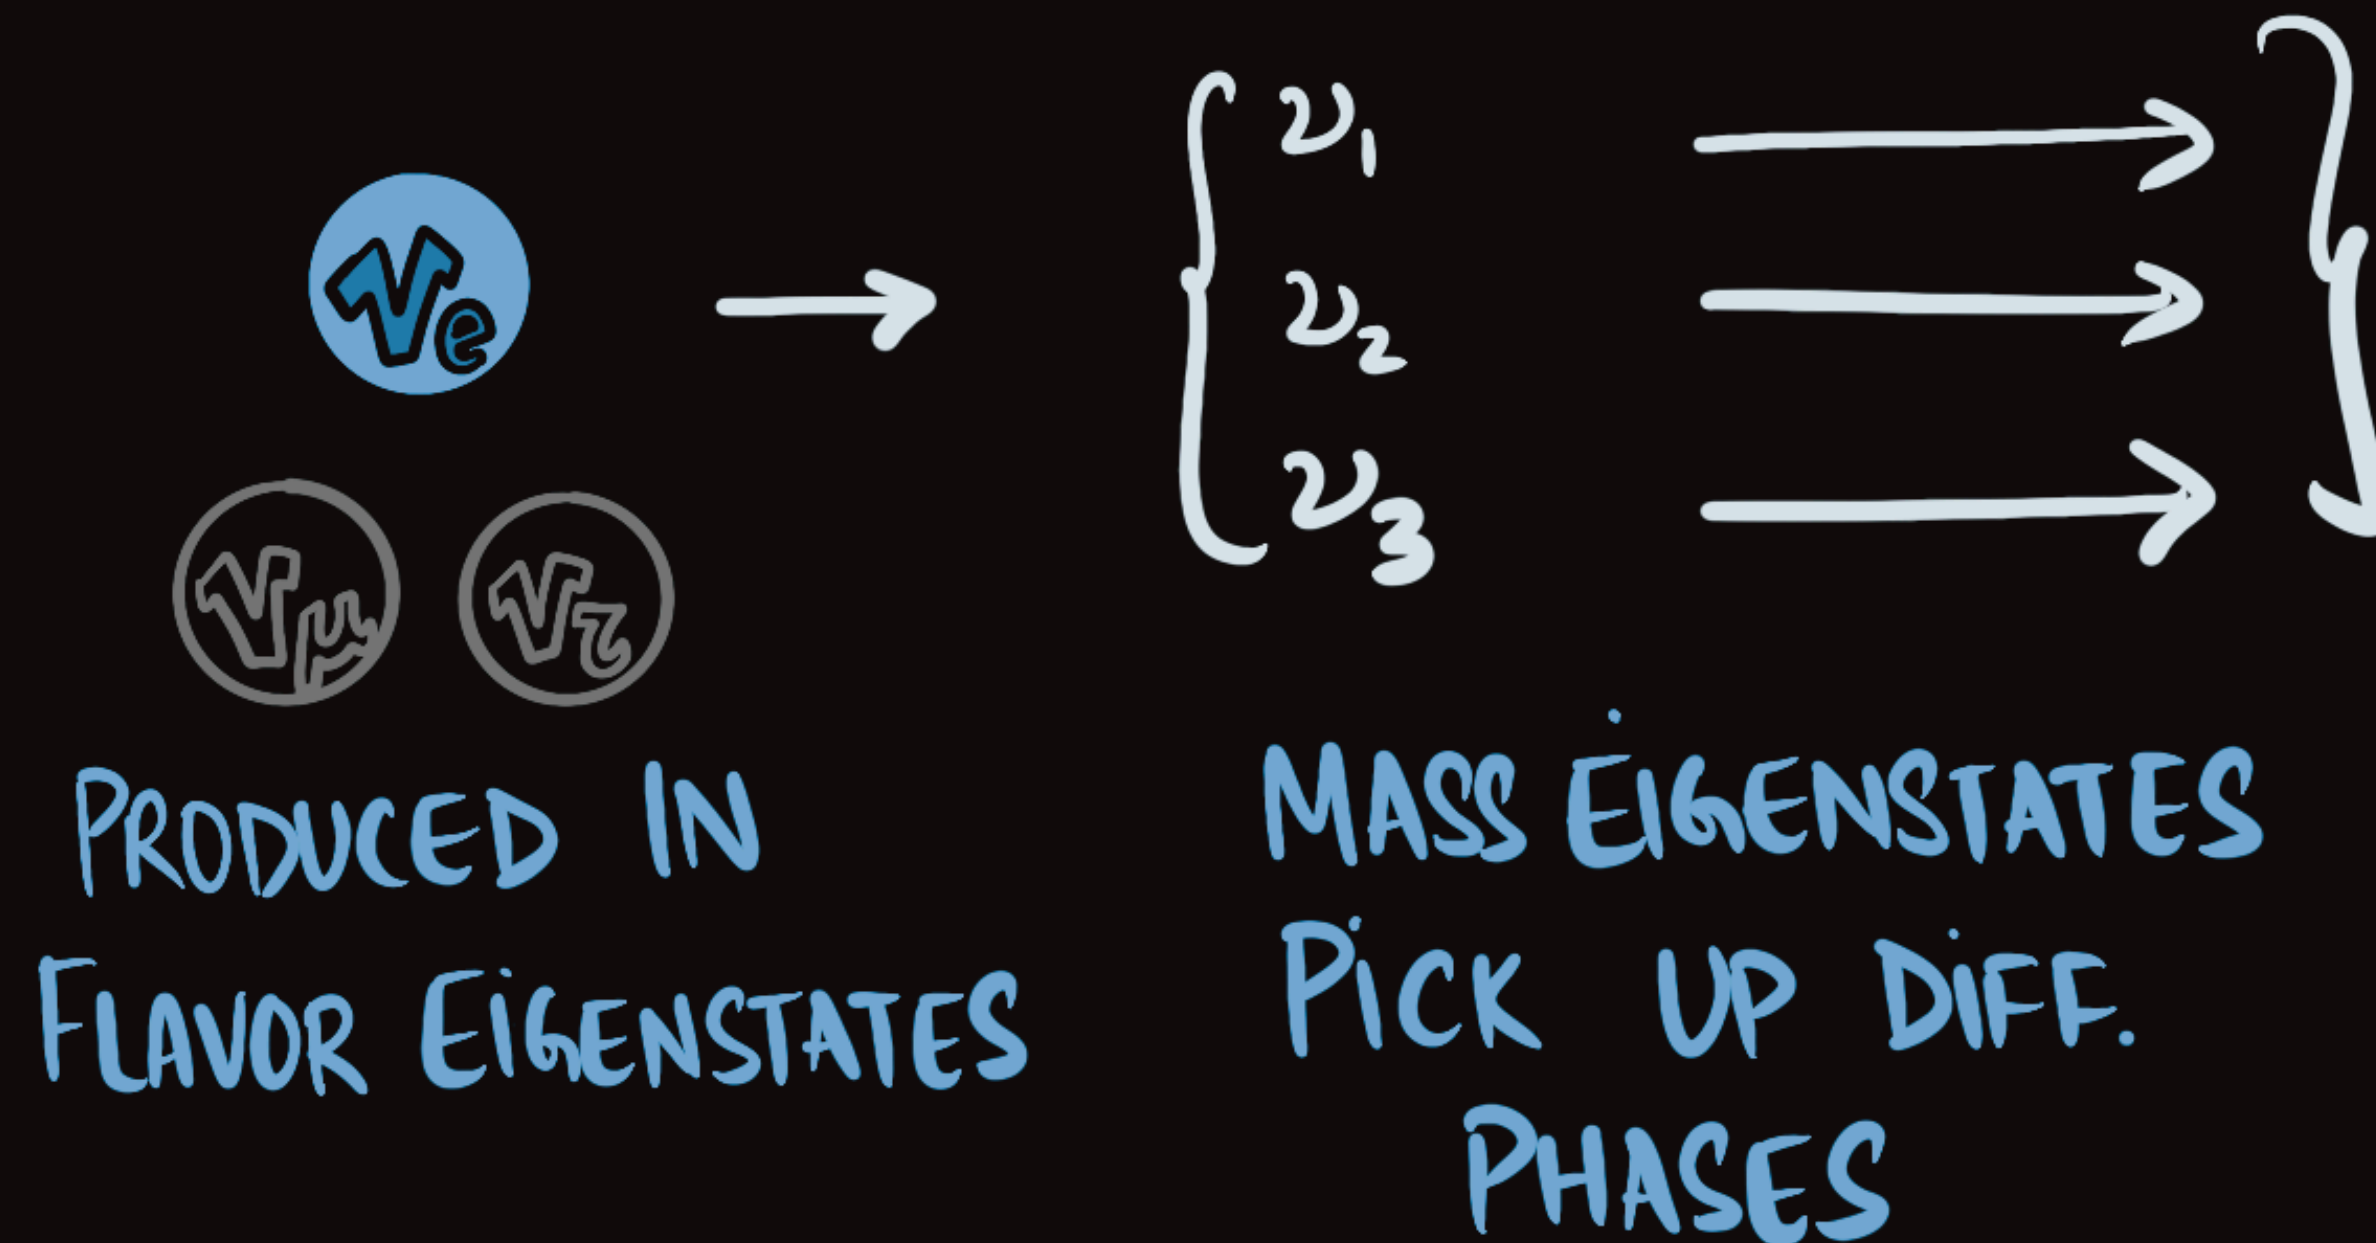 νe
ν1
ν2
ν3
νμ ντ
PRODUCED IN
FLAVOR EIGENSTATES
MASS EIGENSTATES
PICK UP DIFF.
PHASES